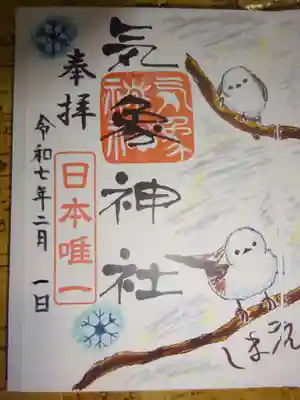 気象神社
奉拝
日本唯一
令和七年二月一日
しまえ